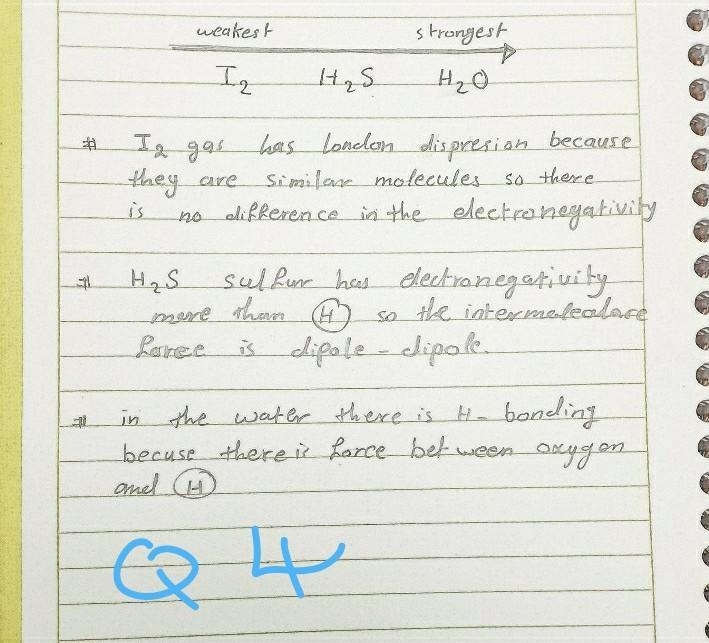 weakest strongest
I2 H2S H2O
# I2 gas has london dispresion because
they are similar molecules so there
is no difference in the electronegativity
# H2S sulfur has electronegativity
more than H so the intermolealare
force is dipole - dipole.
# in the water there is H- bonding
becuse there is force between oxygen
and H
Q 4